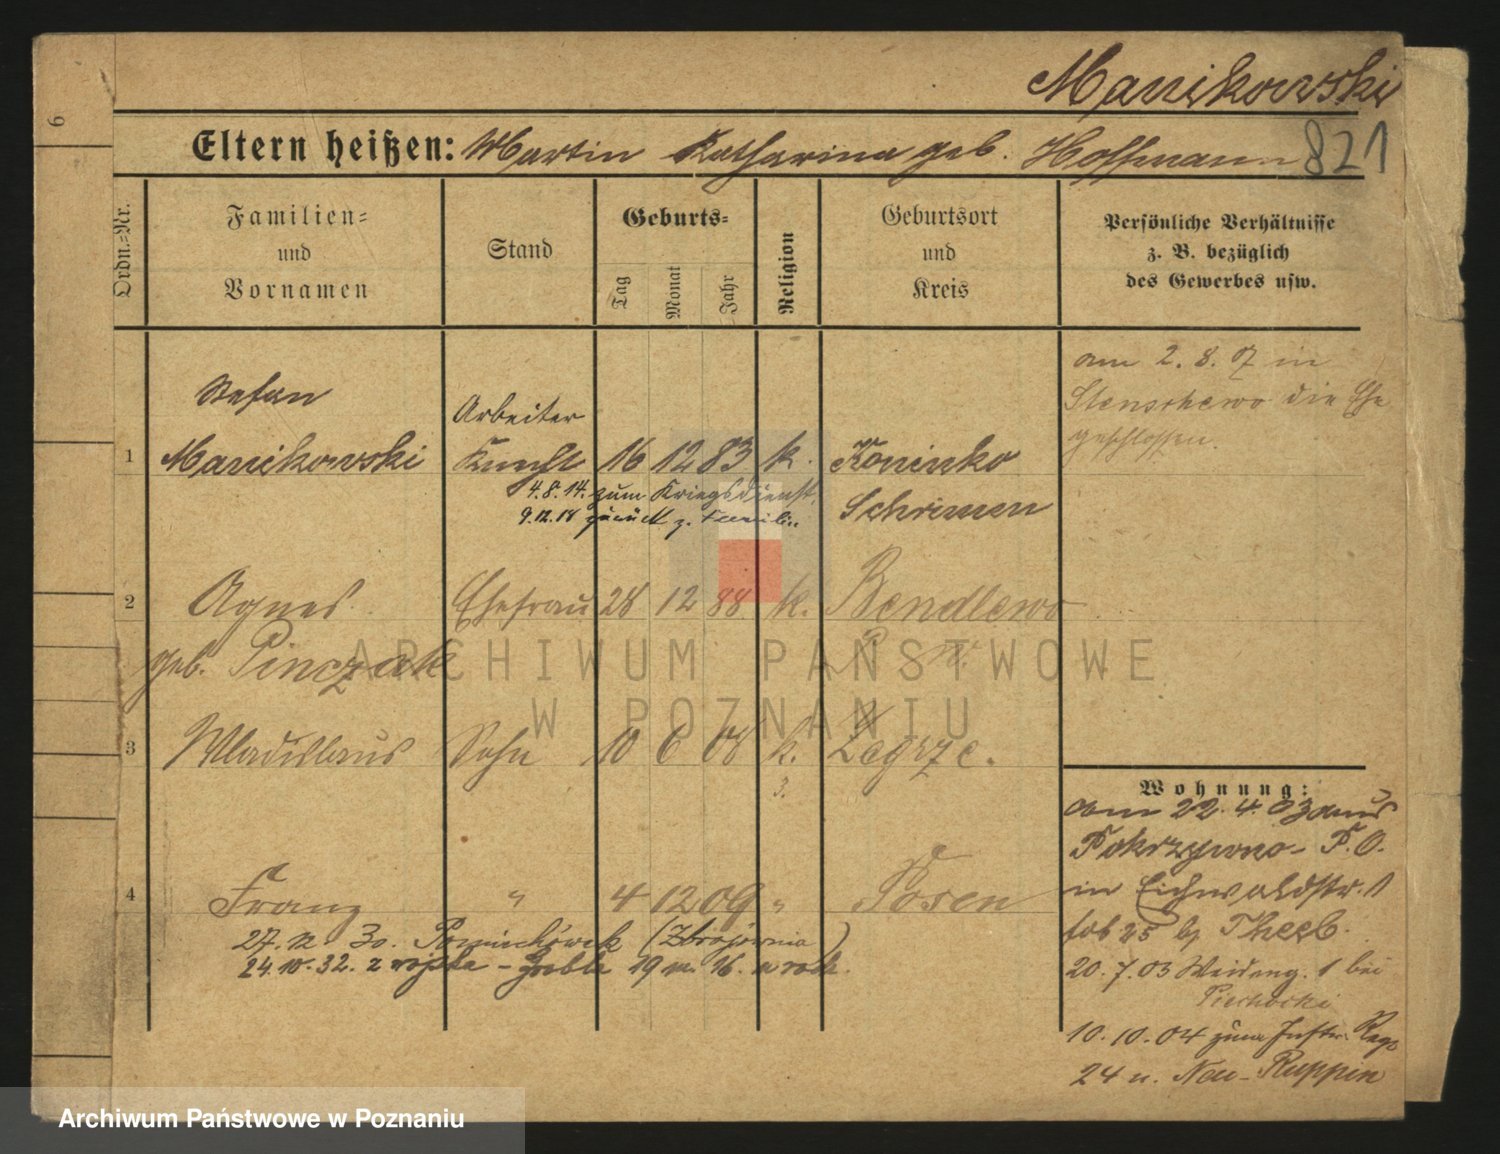 6
Manikowski
Eltern heißen: Martin Katharina geb. Hoffmann 821
Ordn.-Nr.
Familien- und Vornamen
Stand
Geburts-
Tag
Monat
Jahr
Religion
Geburtsort und Kreis
Persönliche Verhältnisse
z. B. bezüglich
des Gewerbes usw.
am 2. 8. 07 in
Stenschewo die Ehe
geschlossen.
Stefan
Arbeiter
1 Manikowski Knecht 16 12 83 k. Koninko
4.8.14. zum Kriegsdienst.
Schrimm
9.12.18 zurück z.
2 Agnes Ehefrau 28 12 88 k. Bendlewo
geb. Pinczak
P. W.
3 Wladislaus Sohn 10 6 08 k. Zegrze.
3.
4 Franz " 4 12 09 " Posen
27. 12. 30. (Zbrojownia)
24.10.32. z wojska - Grobla 19 m. 16.
Wohnung:
am 22. 4. 03 aus
Pokrzywno - P. O.
in Eichwaldstr. 1
bei
20. 7. 03 1 bei
Piechocki
10. 10. 04 zum Inftr. Regt
24 n. Neu-Ruppin
ARCHIWUM PAŃSTWOWE
W POZNANIU
Archiwum Państwowe w Poznaniu